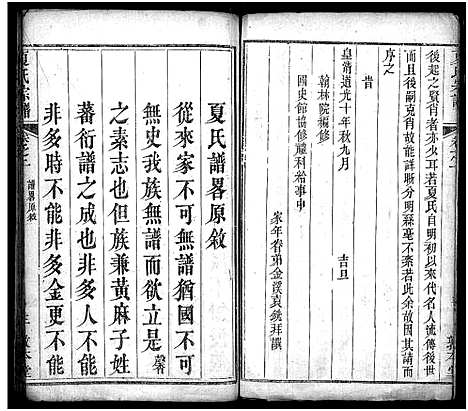 後起之賢肖者亦火耳若夏氏自明初以來代有傳人後世
而且後嗣克肖故能詳斷分明絲毫不紊若此余故因其
序之
旹
皇清道光十年秋九月 吉旦
翰林院編修
國史館協修
家年眷弟金溪袁銑拜撰
夏氏宗譜
敦本堂
夏氏譜畧原敘
從來家不可無譜猶國不可
無史我族無譜而欲立是譜
之素志也但族兼黃麻子姓
蕃衍譜之成也不但不能
非多時不能非多金更不能
夏氏宗譜
譜畧原敘
敦本堂